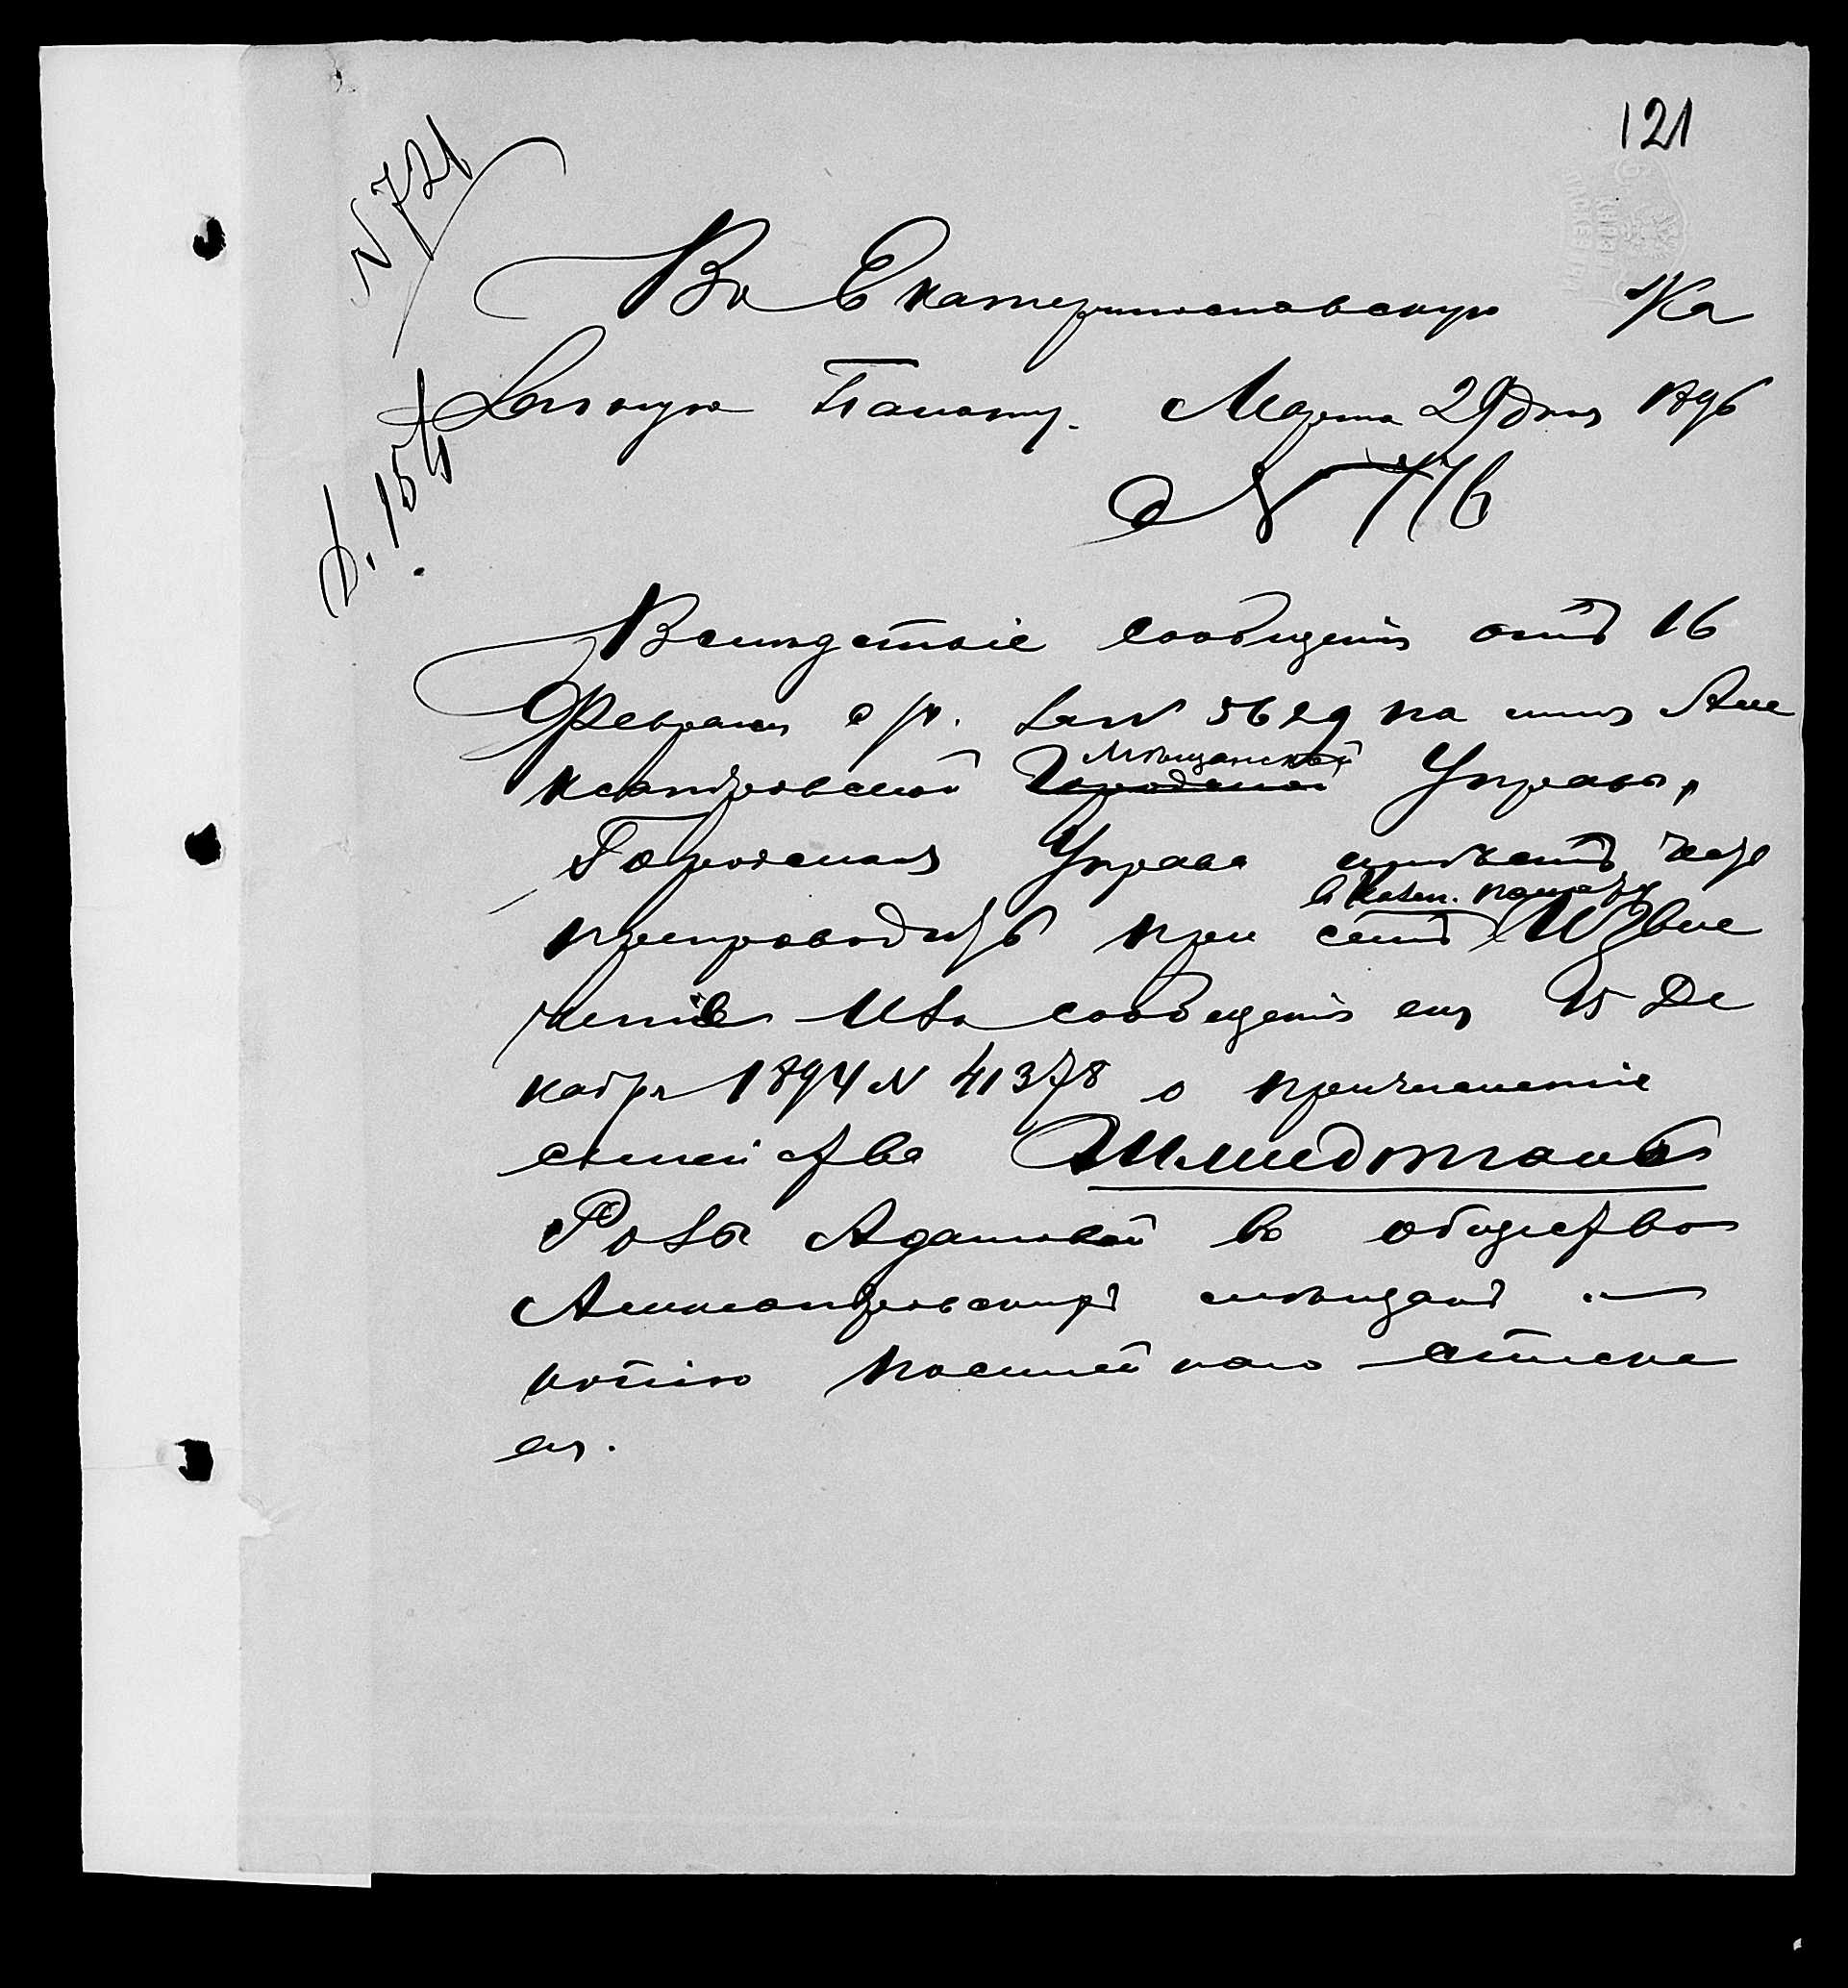 121
N 721
д. 154
Въ Екатеринославскую Ка
зенную Палату. Марта 29 дня 1896
N 776
Вслѣдствіе сообщенія отъ 16
Февраля с/г. за N 5629 на имя Але
ксандровской Городской Управы,
Мѣщанской
Городская Управа имѣетъ честь
препроводить при семъ Извле
в Казен. палату
ченіе изъ сообщенія ея 15 Де
кабря 1894 N 41378 о причисленіе
семейства
Розы Адамовой въ общество
Александровскихъ мѣщанъ и
копію посемейнаго списка
ея.